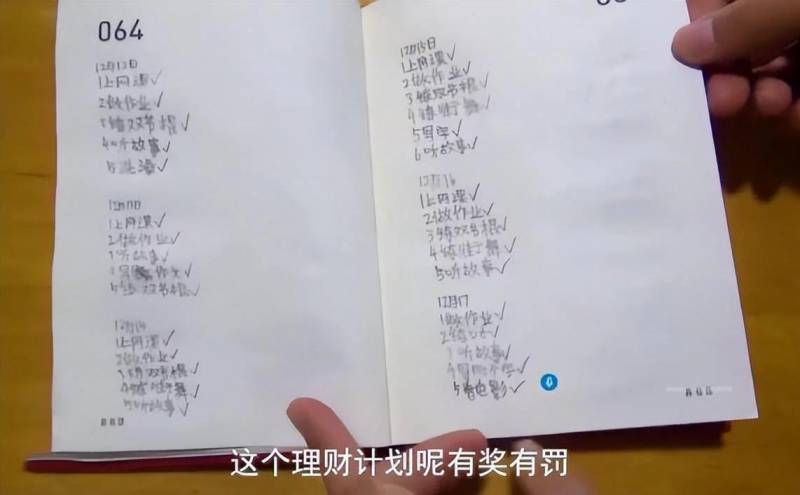 064
12月12日
1上网课✓
2做作业✓
3练双节棍✓
4听故事✓
5洗澡✓
1上网课✓
2做作业✓
听故事✓
5练双节棍✓
12月14
1上网课✓
2做作业✓
3练双节棍✓
4练街舞✓
5听故事✓
12月15日
1上网课✓
2做作业✓
3练双节棍✓
4练街舞✓
5写字✓
6听故事✓
12月16
1上网课✓
2做作业✓
3练双节棍✓
4练街舞✓
5听故事✓
12月17
1做作业✓
3听故事✓
5看电影✓
这个理财计划呢有奖有罚